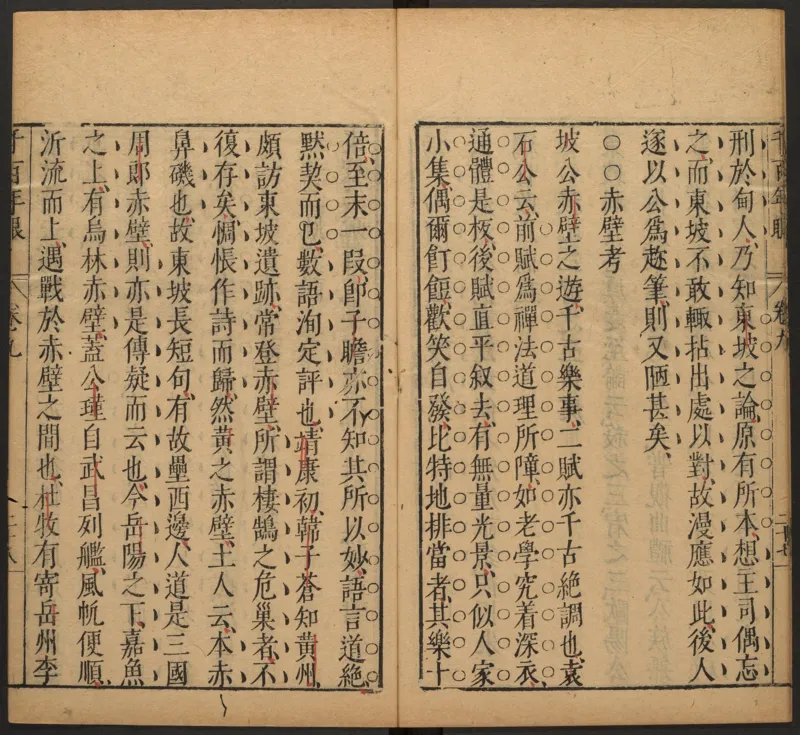 千百年眼 卷九
刑於甸人、乃知東坡之論、原有所本、想王司偶忘
之、而東坡不敢輙拈出處以對、故漫應如此、後人
遂以公為趂筆、則又陋甚矣、
○○赤壁考
坡公赤壁之遊、千古樂事、二賦亦千古絶調也、袁
石公云、前賦為禪法道理所障、如老學究着深衣、
通體是板、後賦直平叙去、有無量光景、只似人家
小集、偶爾飣餖、歡笑自發、比特地排當者、其樂十
倍、至末一段、即子瞻亦不知其所以妙、語言道絶、
黙契而已、數語洵定評也、靖康初、韓子蒼知黄州、
頗訪東坡遺跡、常登赤壁、所謂棲鶻之危巢者、不
復存矣、惆悵作詩而歸、然黄之赤壁、土人云、本赤
鼻磯也、故東坡長短句、有故壘西邊、人道是三國
周郎赤壁、則亦是傳疑而云也、今岳陽之下、嘉魚
之上、有烏林赤壁、葢公瑾自武昌列艦、風帆便順、
泝流而上、遇戰於赤壁之間也、杜牧有寄岳州李
千百年眼 卷九